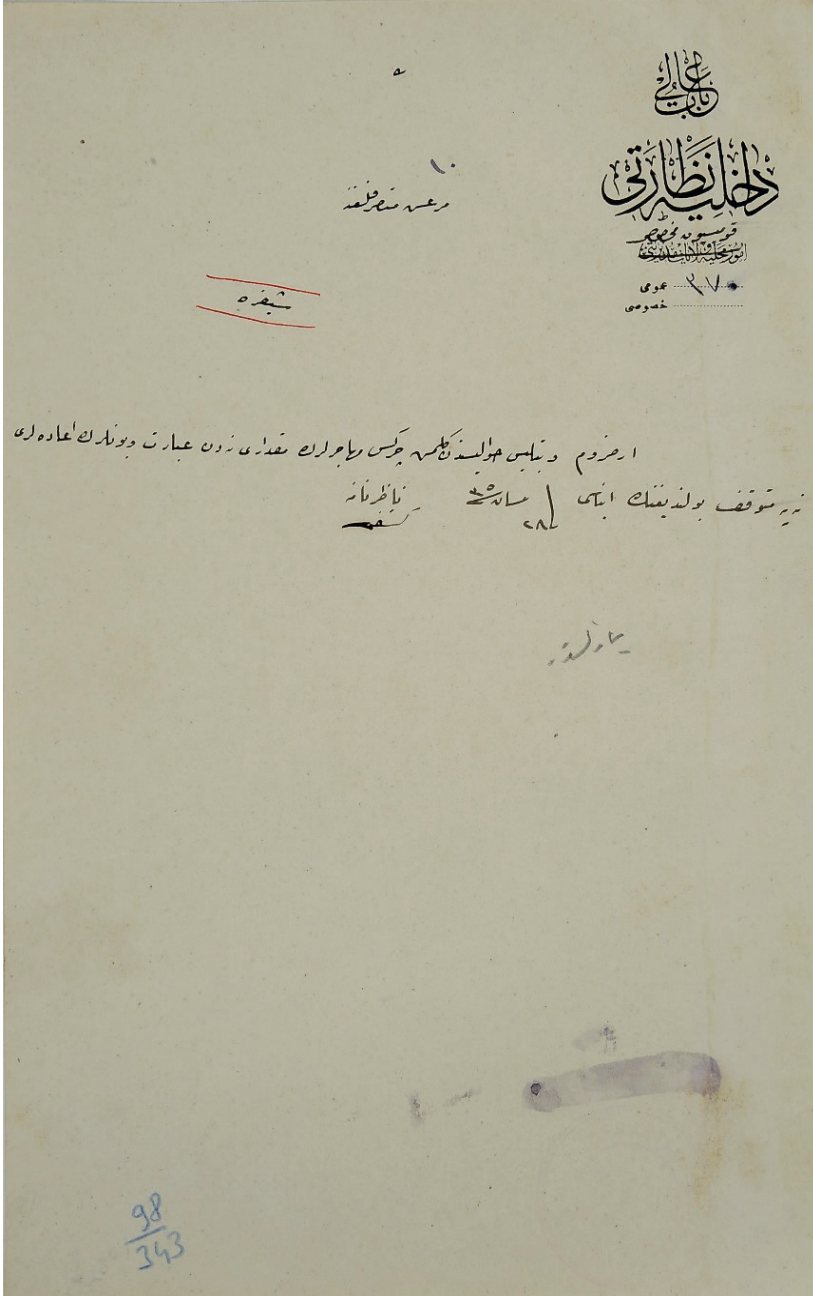 باب عالی
داخلیه نظارتی
قومیسیون مخصوص
عمومی ٣٧٠
خصوصی
١٠
مرعش متصرفلغنه
شیفره
ارضروم و بتلیس حوالیسندن کلمن چرکس مهاجرلرك مقداری نه‌دن عبارت و بونلرك اعاده‌لری
نه‌یه متوقف بولندیغنك انباسی ٢٨ نیسان ٣٥ ناظر نامنه
98
343